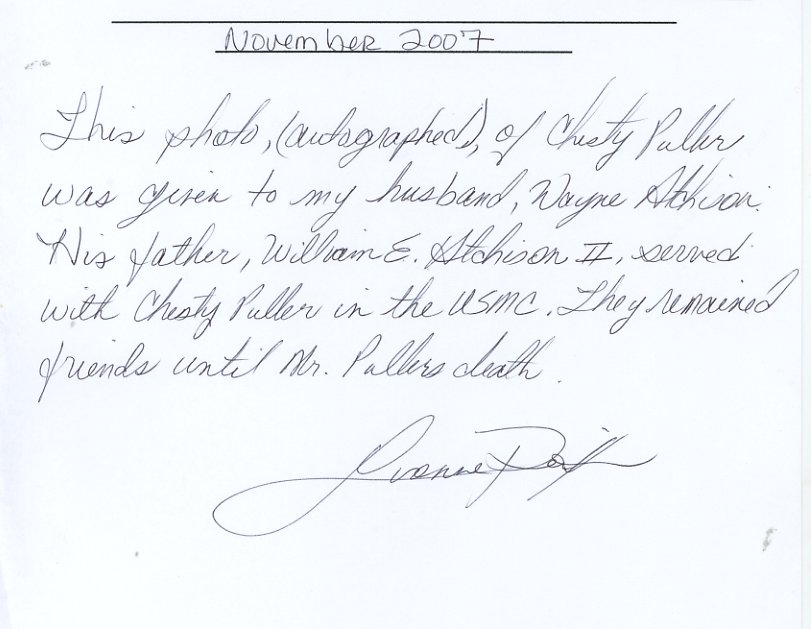 November 2007
This photo, (autographed), of Chesty Puller
was given to my husband, Wayne Atchison.
His father, William E. Atchison II, served
with Chesty Puller in the USMC. They remained
friends until Mr. Pullers death.
Yvonne